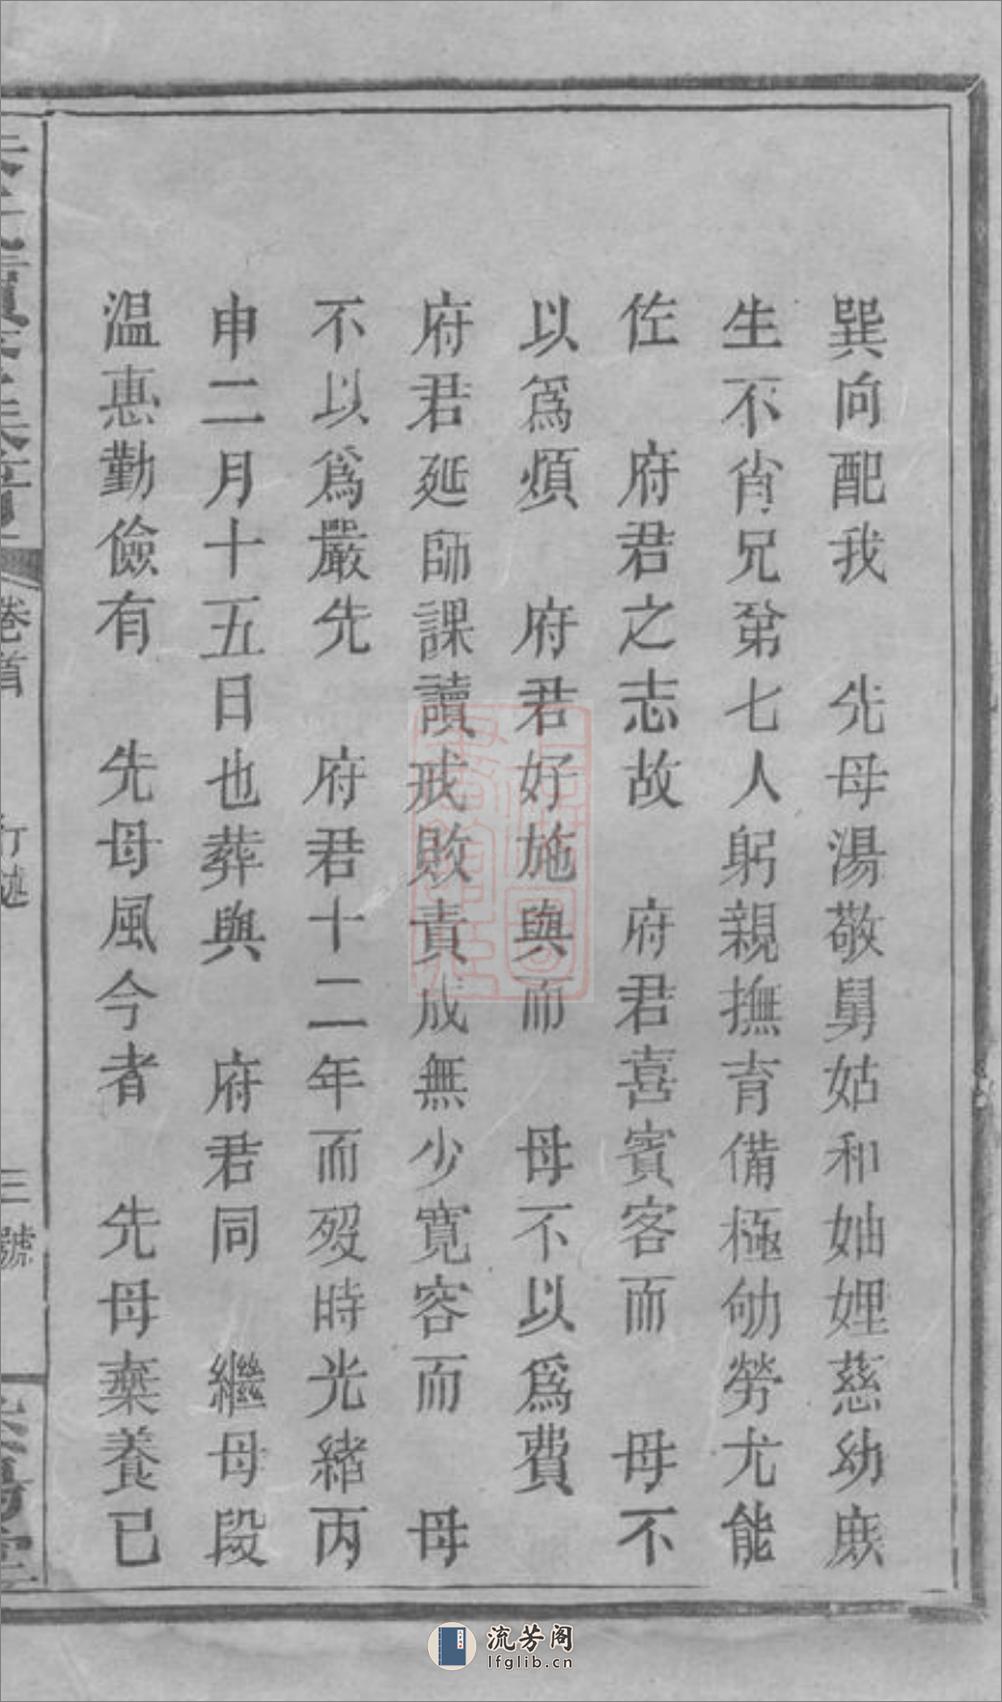 巽向配我　先母湯敬舅姑和妯娌慈幼庶
生不肖兄弟七人躬親撫育備極劬勞尤能
佐　府君之志故　府君喜賓客而　母不
以爲煩　府君好施與而　母不以爲費
府君延師課讀戒敗責成無少寬容而　母
不以爲嚴先　府君十二年而歿時光緒丙
申二月十五日也葬與　府君同　繼母段
温惠勤儉有　先母風今者　先母棄養已
卷首
行述
三號
流芳阁
lfglib.cn